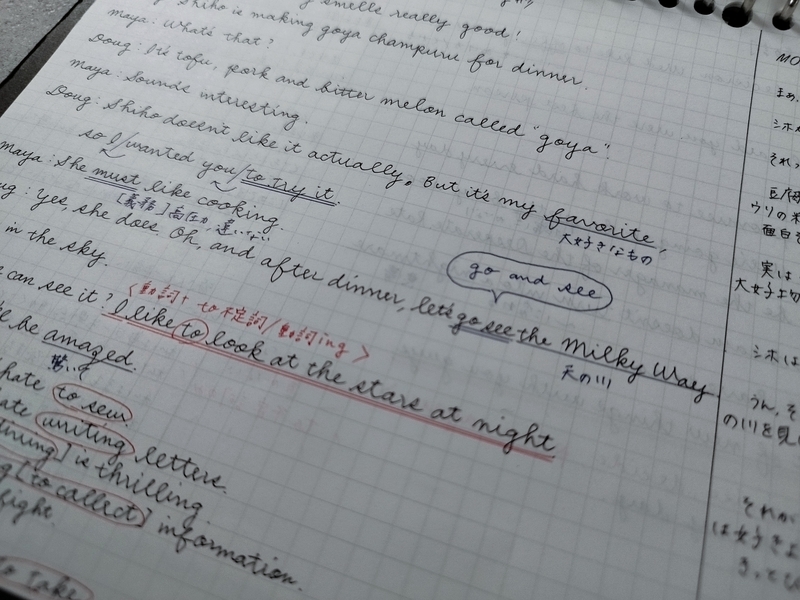 smells really good!
Shiho is making goya champuru for dinner.
Maya: What's that?
Doug: It's tofu, pork and bitter melon called "goya".
Maya: Sounds interesting.
Doug: Shiho doesn't like it actually. But it's my favorite,
大好きなもの
so I wanted you to try it.
Maya: She must like cooking.
[義務]
ug: Yes, she does. Oh, and after dinner, let's go see the Milky Way
go and see
天の川
in the sky.
can see it? I like to look at the stars at night
<動詞+ to不定詞/動詞ing>
be amazed.
hate to sew.
ate writing letters.
thing] is thrilling.
g [to collect] information.
to take
MO
まぁ、
シホ
それ
豆腐
ウリの
面白
実は
大好
シホは
うん、そ
の川を見
それが
は大好きよ
きっと